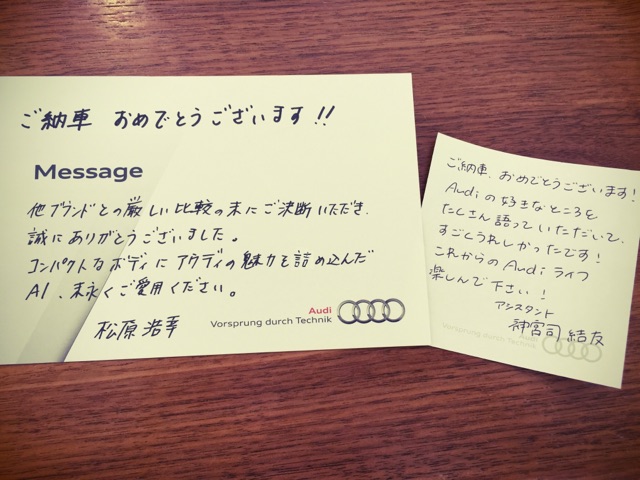 ご納車 おめでとうございます!!
Message
他ブランドとの厳しい比較の末にご決断いただき、
誠にありがとうございました。
コンパクトなボディにアウディの魅力を詰め込んだ
A1、末永くご愛用ください。
松原浩幸
Audi
Vorsprung durch Technik
ご納車、おめでとうございます!
Audiの好きなところを
たくさん語っていただいて、
すごくうれしかったです!
これからのAudiライフ
楽しんで下さい!
アシスタント
神宮司 結友
Audi
Vorsprung durch Technik